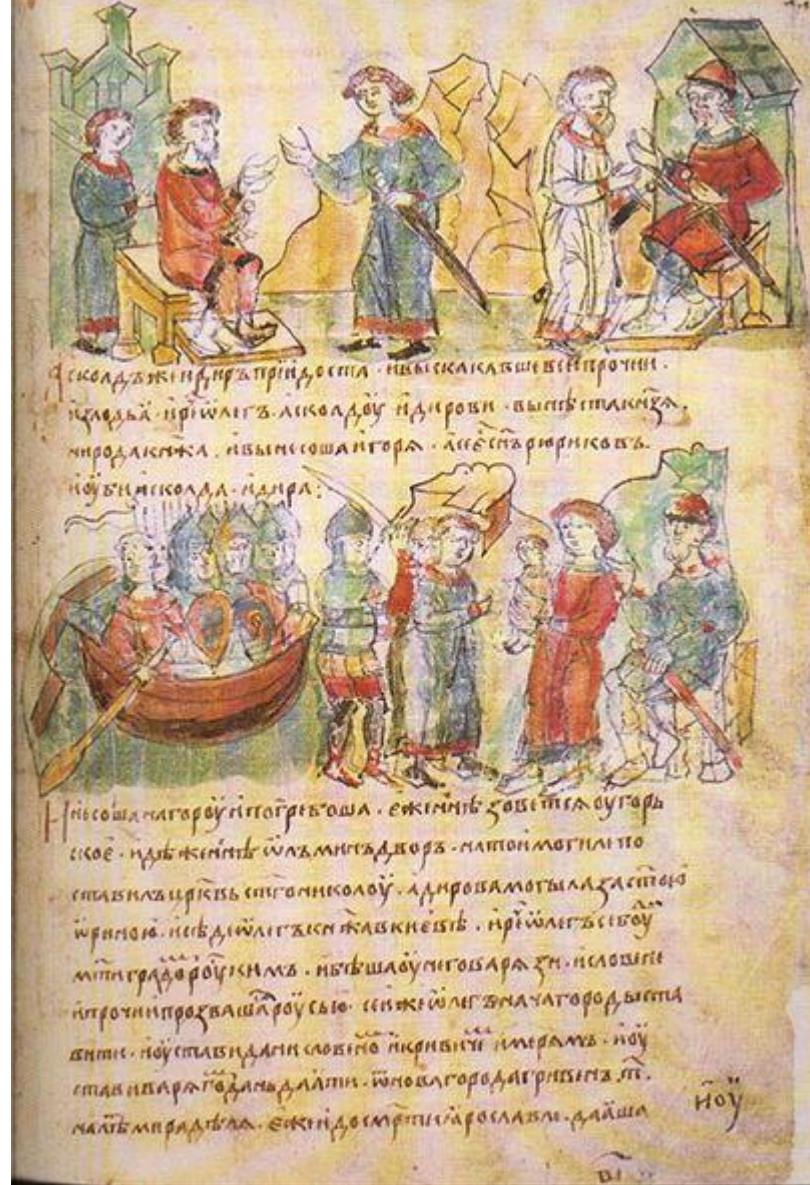 Асколдъ же и Диръ придоста · и выскакавше вси прочии ·
излодьѧ · и реⷱ҇ ѡлегъ · асколдоу и дирови · вы нѣста кнѧзѧ ·
ни рода кнѧжа · и вынесоша игорѧ · а се есть сн҃ъ рюриковъ
и оубиша асколда · и дира :
Несоша на гороу и погребоша · еже нн҃ѣ зоветсѧ оугорь
ское · идѣже нн҃ѣ ѡлъминъ дворъ · на тои могилѣ по
ставилъ цр҃квь ст҃го николоу · а дирова могыла за ст҃ою
ѡриною · и сѣде ѡлегъ кнѧжа в киевѣ · и реⷱ҇ ѡлегъ се боуⷣ
мт҃и градоⷨ роуⷭкимъ · и бѣша оу него варѧзи · и словене
и прочии прозвашасѧ роусью · сеи же ѡлегъ нача городы ста
вити · и оустави дани словеноⷨ и кривичеⷨ и мерѧмъ · и оу
стави варѧгоⷨ дань даꙗти · ѿ новагорода гривенъ т҃ ·
на лѣⷮ мира дѣлѧ · еже и до смр҃ти ꙗрославлѧ · даꙗша
и оу